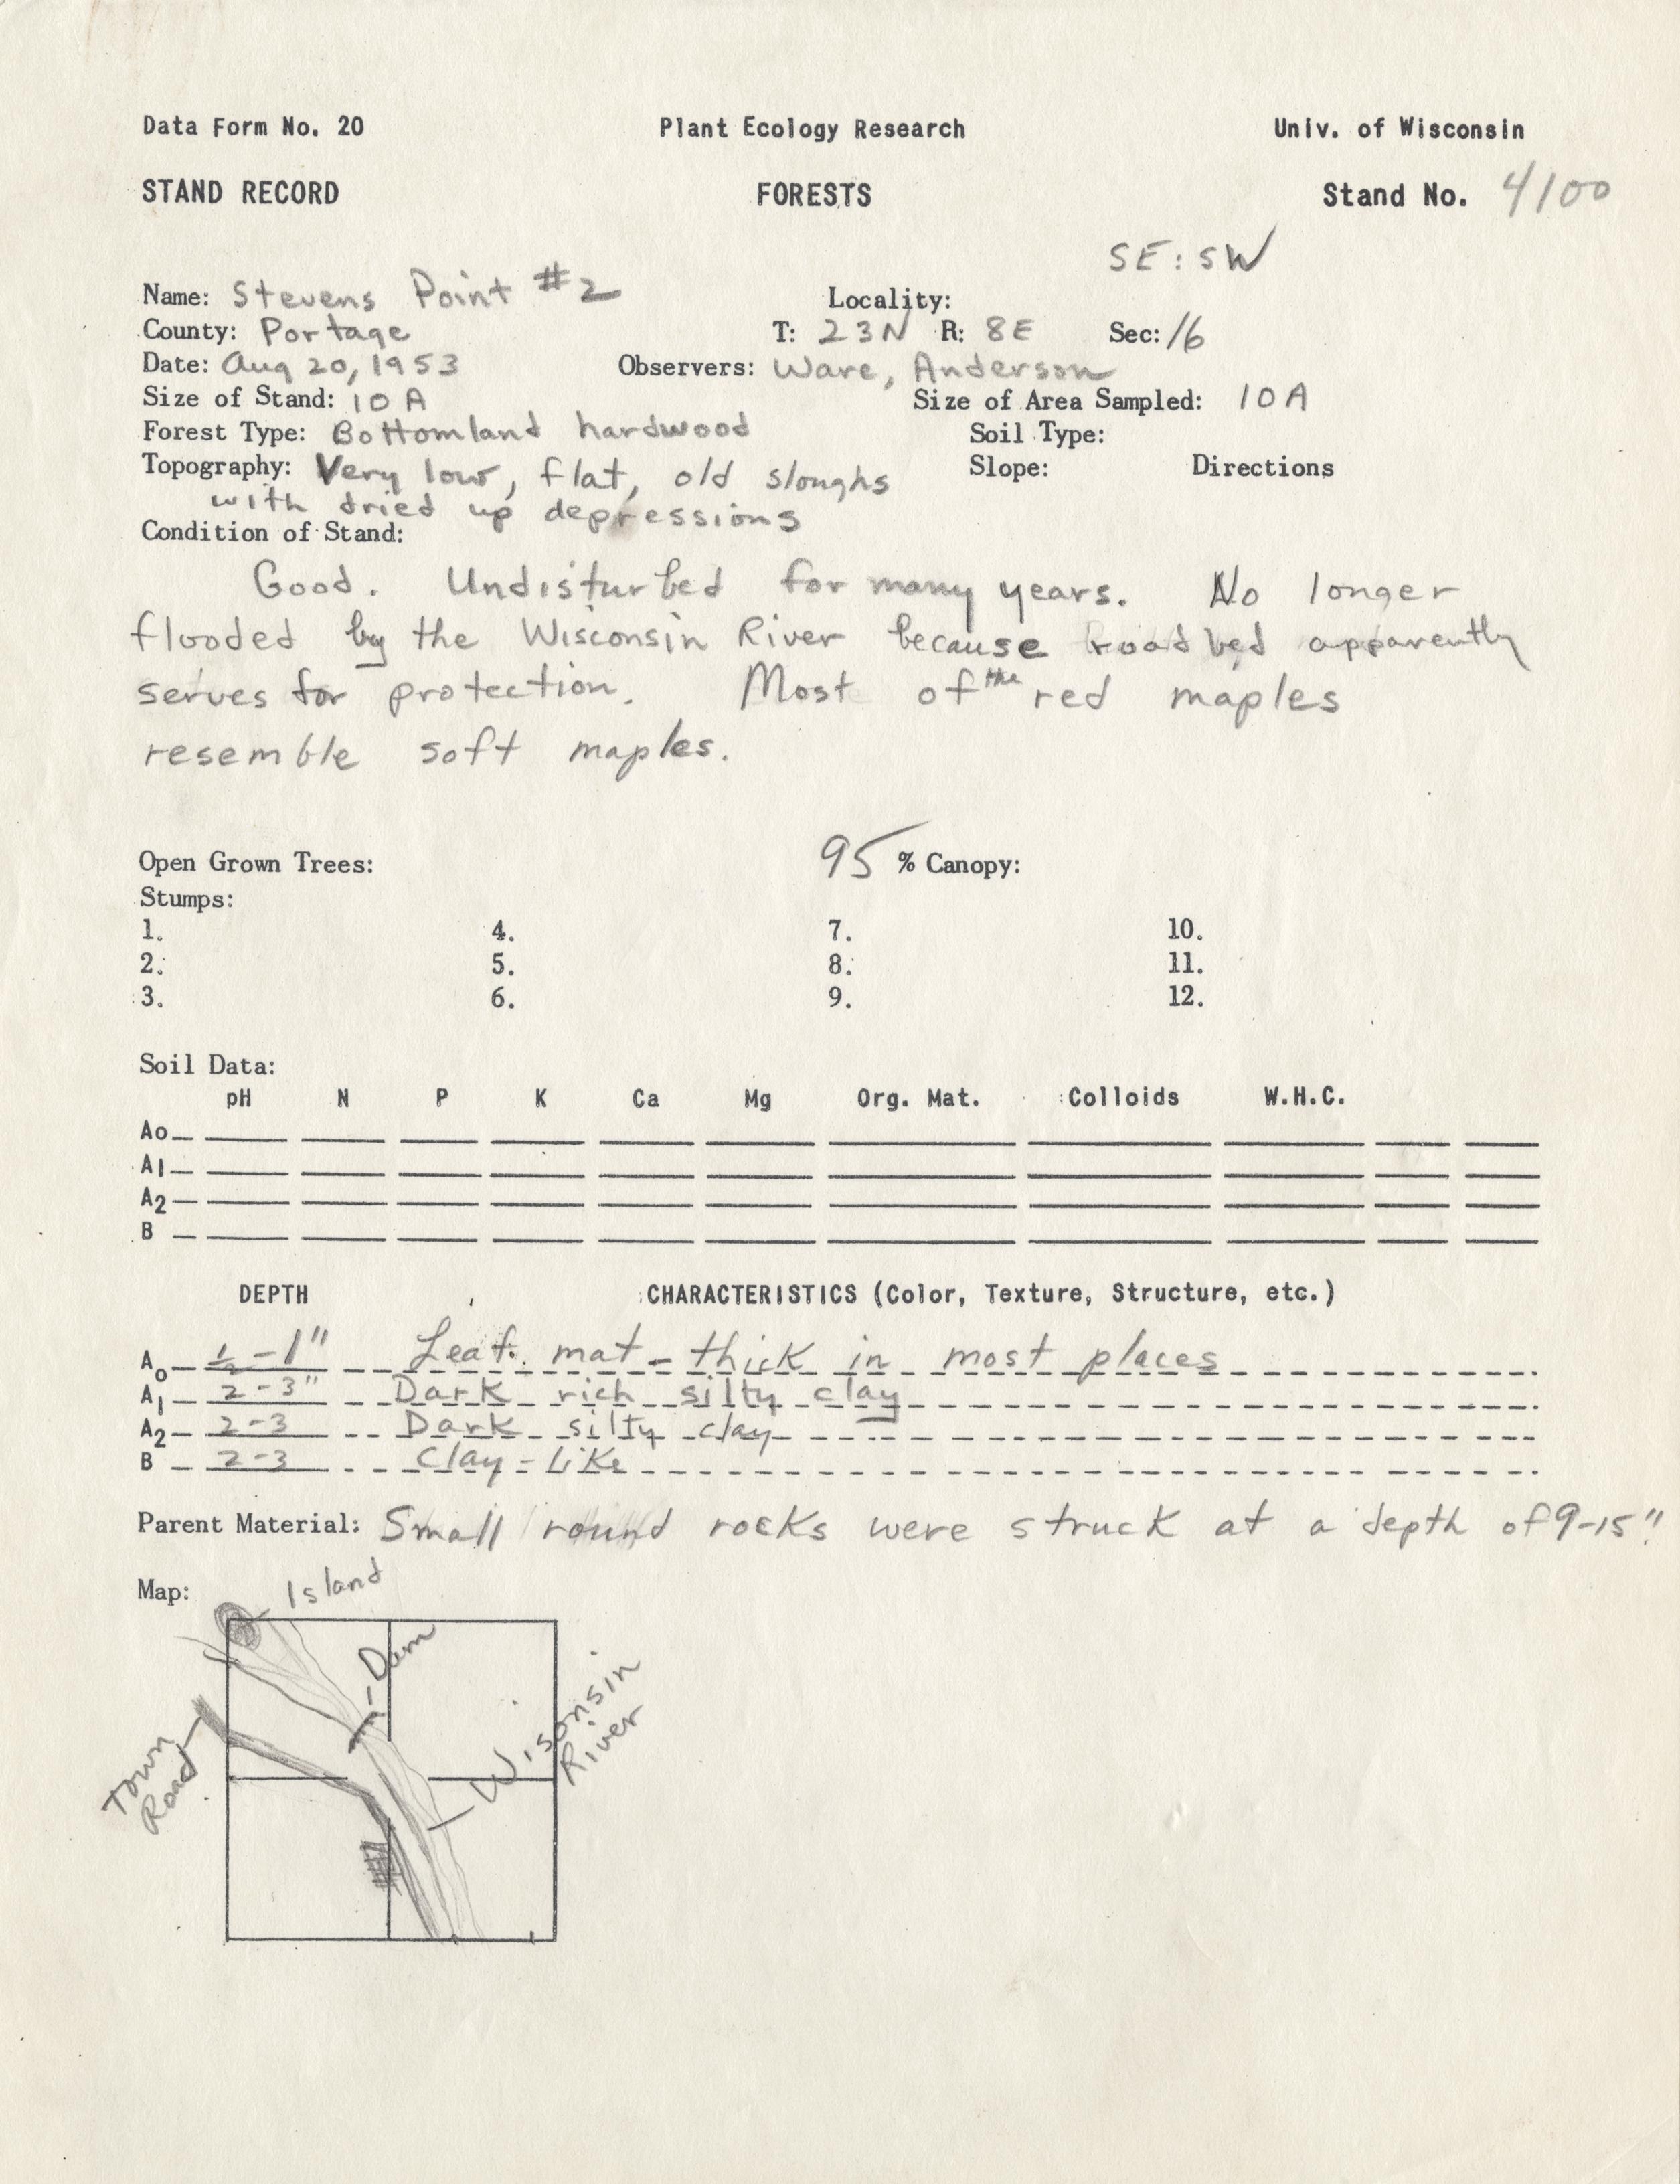 Data Form No. 20 Plant Ecology Research Univ. of Wisconsin
STAND RECORD FORESTS Stand No. 4100
SE: SW
Name: Stevens Point #2 Locality:
County: Portage T: 23N R: 8E Sec: 16
Date: Aug 20, 1953 Observers: Ware, Anderson
Size of Stand: 10 A Size of Area Sampled: 10 A
Forest Type: Bottomland hardwood Soil Type:
Topography: Very low, flat, old sloughs Slope: Directions
with dried up depressions
Condition of Stand:
Good. Undisturbed for many years. No longer
flooded by the Wisconsin River because road bed apparently
serves for protection. Most of the red maples
resemble soft maples.
Open Grown Trees: 95 % Canopy:
Stumps:
1. 4. 7. 10.
2. 5. 8. 11.
3. 6. 9. 12.
Soil Data:
pH N P K Ca Mg Org. Mat. Colloids W.H.C.
Ao
A1
A2
B
DEPTH CHARACTERISTICS (Color, Texture, Structure, etc.)
Ao ½-1" Leaf mat - thick in most places
A1 2-3" Dark rich silty clay
A2 2-3 Dark silty clay
B 2-3 Clay-Like
Parent Material: Small round rocks were struck at a depth of 9-15".
Map: Island
Dam
Wisonsin
River
Town
Road